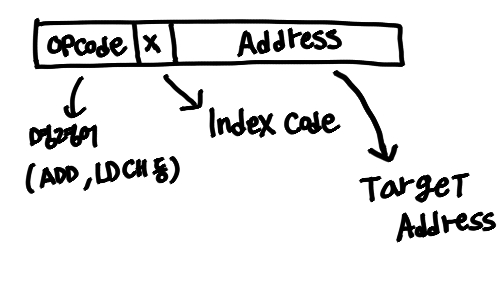 OPcode X Address
명령어
(ADD, LDCH 등)
Index Code
Target
Address